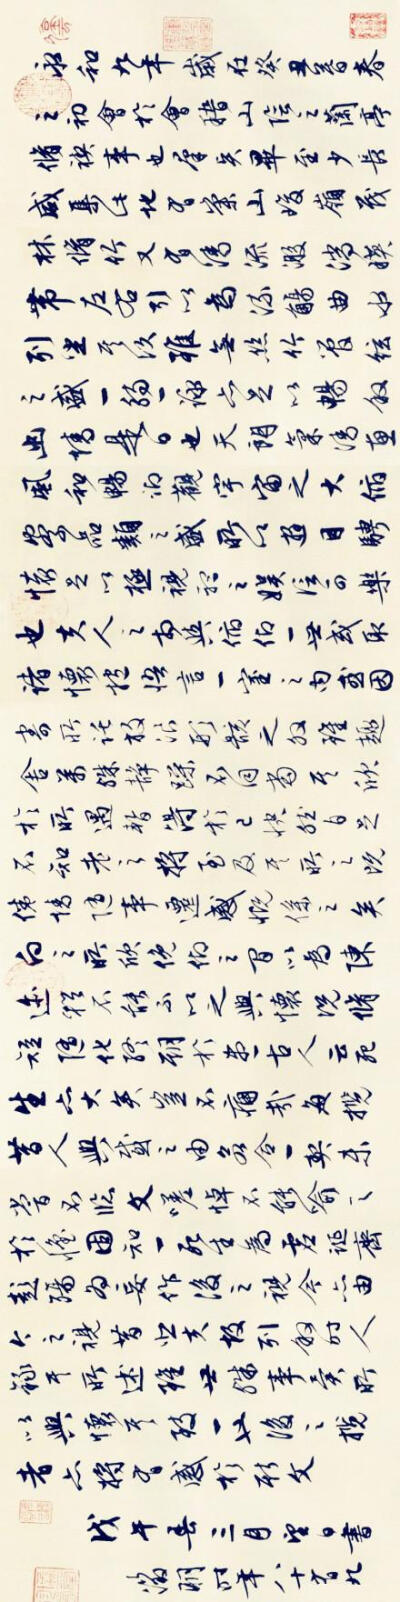 永和九年歲在癸丑暮春
之初會於會稽山陰之蘭亭
脩禊事也羣賢畢至少長
咸集此地有崇山峻嶺茂
林脩竹又有清流激湍暎
帶左右引以為流觴曲水
列坐其次雖無絲竹管弦
之盛一觴一詠亦足以暢敘
幽情是日也天朗氣清惠
風和暢仰觀宇宙之大俯
察品類之盛所以遊目騁
懷足以極視聽之娛信可樂
也夫人之相與俯仰一世或取
諸懷抱悟言一室之內或因
寄所託放浪形骸之外雖趣
舍萬殊靜躁不同當其欣
於所遇暫得於己快然自足
不知老之將至及其所之既
倦情隨事遷感慨係之矣
向之所欣俛仰之間以為陳
迹猶不能不以之興懷況脩
短隨化終期於盡古人云死
生亦大矣豈不痛哉每攬
昔人興感之由若合一契未
嘗不臨文嗟悼不能喻之
於懷固知一死生為虛誕齊
彭殤為妄作後之視今亦由
今之視昔悲夫故列敘時人
錄其所述雖世殊事異所
以興懷其致一也後之攬
者亦將有感於斯文
戊午春三月望日書
徵明時年八十有九